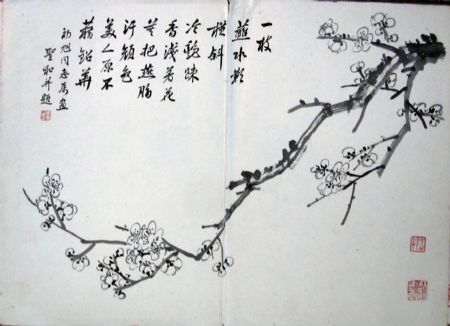 一枝
蘸水影
橫斜
冷艷疎
香淺著花
莫把燕脂
汙顏色
美人原不
藉鉛華
初旭同志屬畫
聖和并題